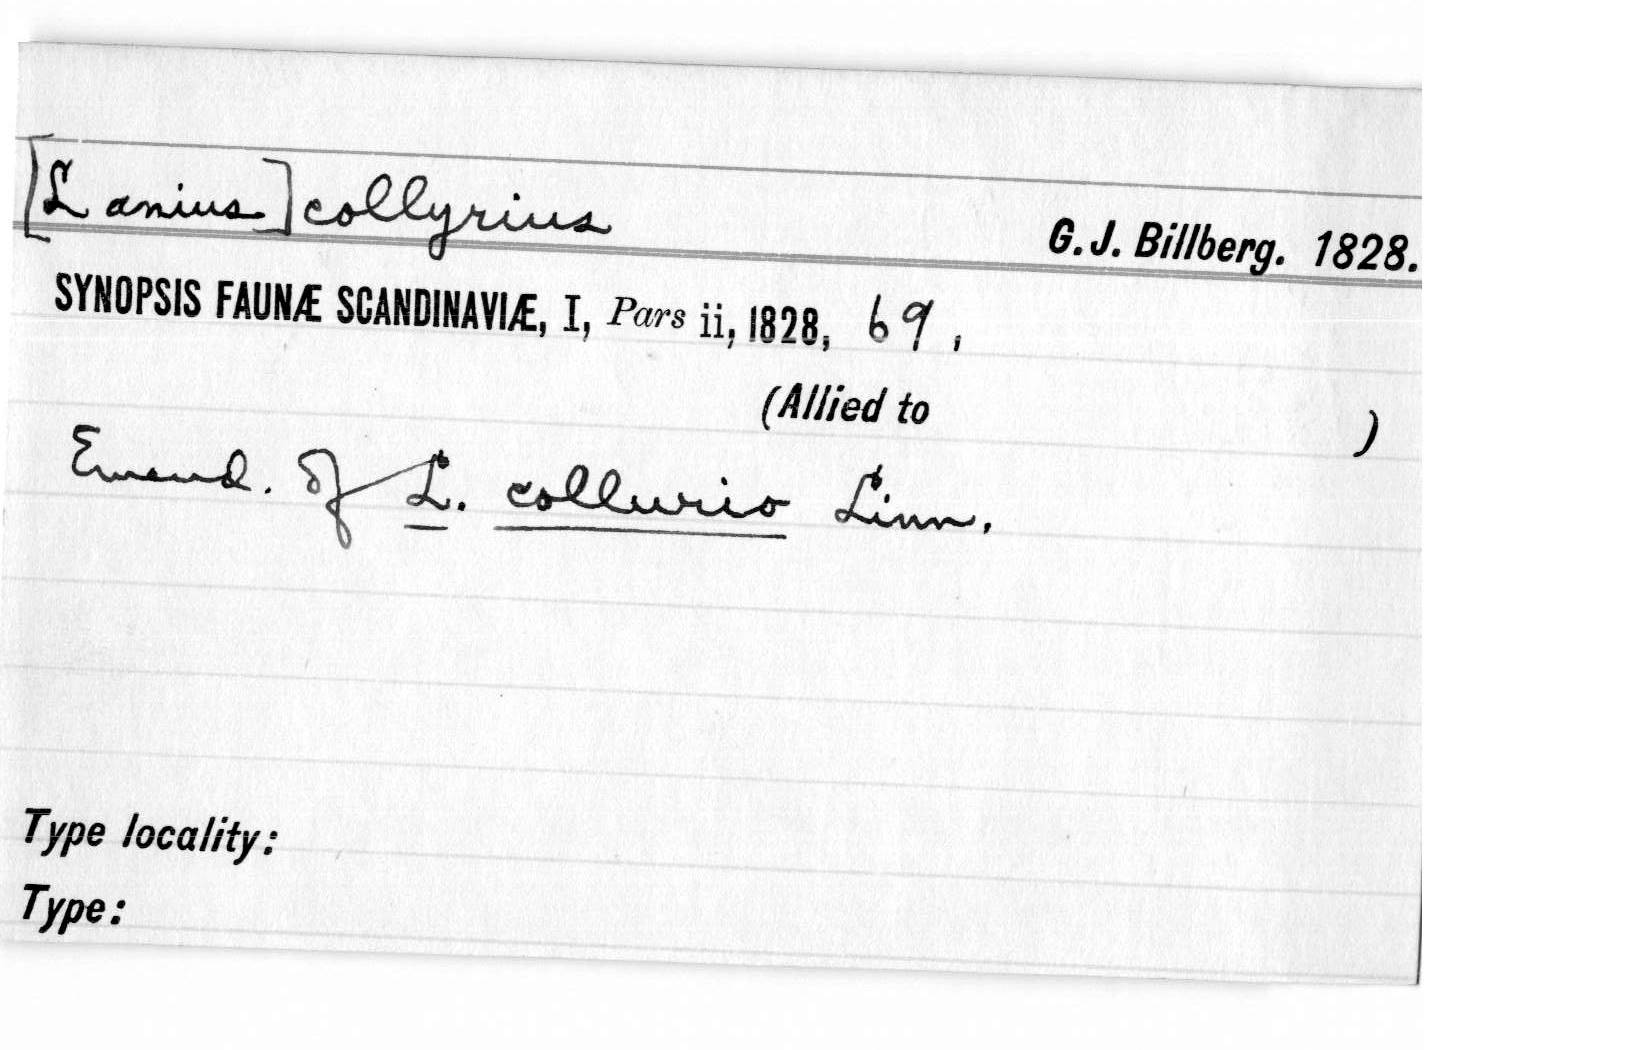 [Lanius] collyrius
G. J. Billberg. 1828.
SYNOPSIS FAUNÆ SCANDINAVIÆ, I, Pars ii, 1828, 69,
(Allied to )
Emend. of L. collurio Linn.
Type locality:
Type: